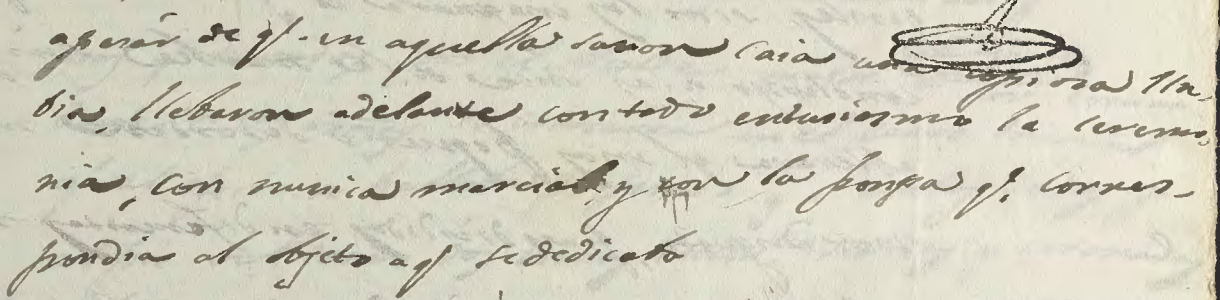 apesár de qᵉ. en aquella sason caia una copiosa llu-
bia, llebaron adelante con todo entusiasmo la ceremo-
nia, con musica marcial y con la pompa qᵉ. corres-
pondia al objeto a qᵉ se dedicaba